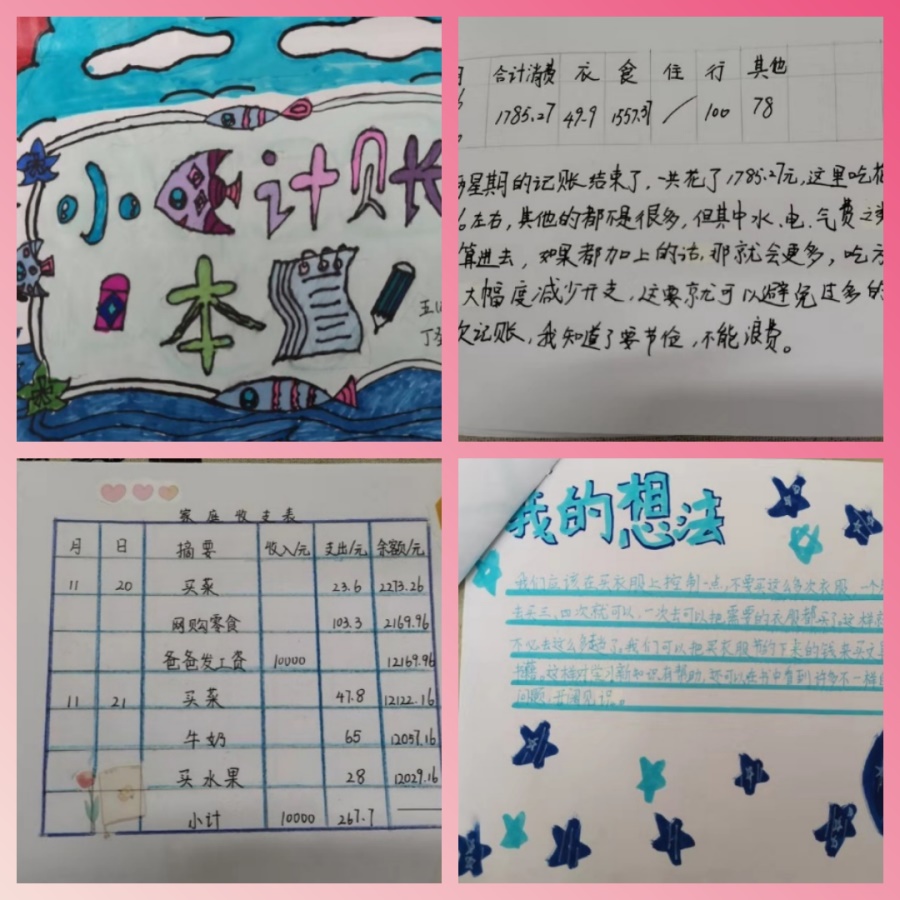 小 计账
本
合计消费 衣 食 住 行 其他
1785.27 49.9 1557.37 / 100 78
星期的记账结束了，一共花了1785.27元，这里吃
左右，其他的都不是很多，但其中水、电、气费
算进去，如果都加上的话，那就会更多，吃
大幅度减少开支，这要就可以避免过多的
次记账，我知道了要节俭，不能浪费。
家庭收支表
月 日 摘要 收入/元 支出/元 余额/元
11 20 买菜 23.6 2273.26
网购零食 103.3 2169.96
爸爸发工资 10000 12169.96
11 21 买菜 47.8 12122.16
牛奶 65 12057.16
买水果 28 12029.16
小计 10000 267.7 —
我的想法
我们应该在买衣服上控制一点，不要买这么多次衣服，一个
去买三、四次就可以，一次去可以把需要的衣服都买了，这样
我们可以把买衣服节约下来的钱来买
书籍，这样对学习新知识有帮助，还可以在书中看到许多不一样
问题，开阔见识。